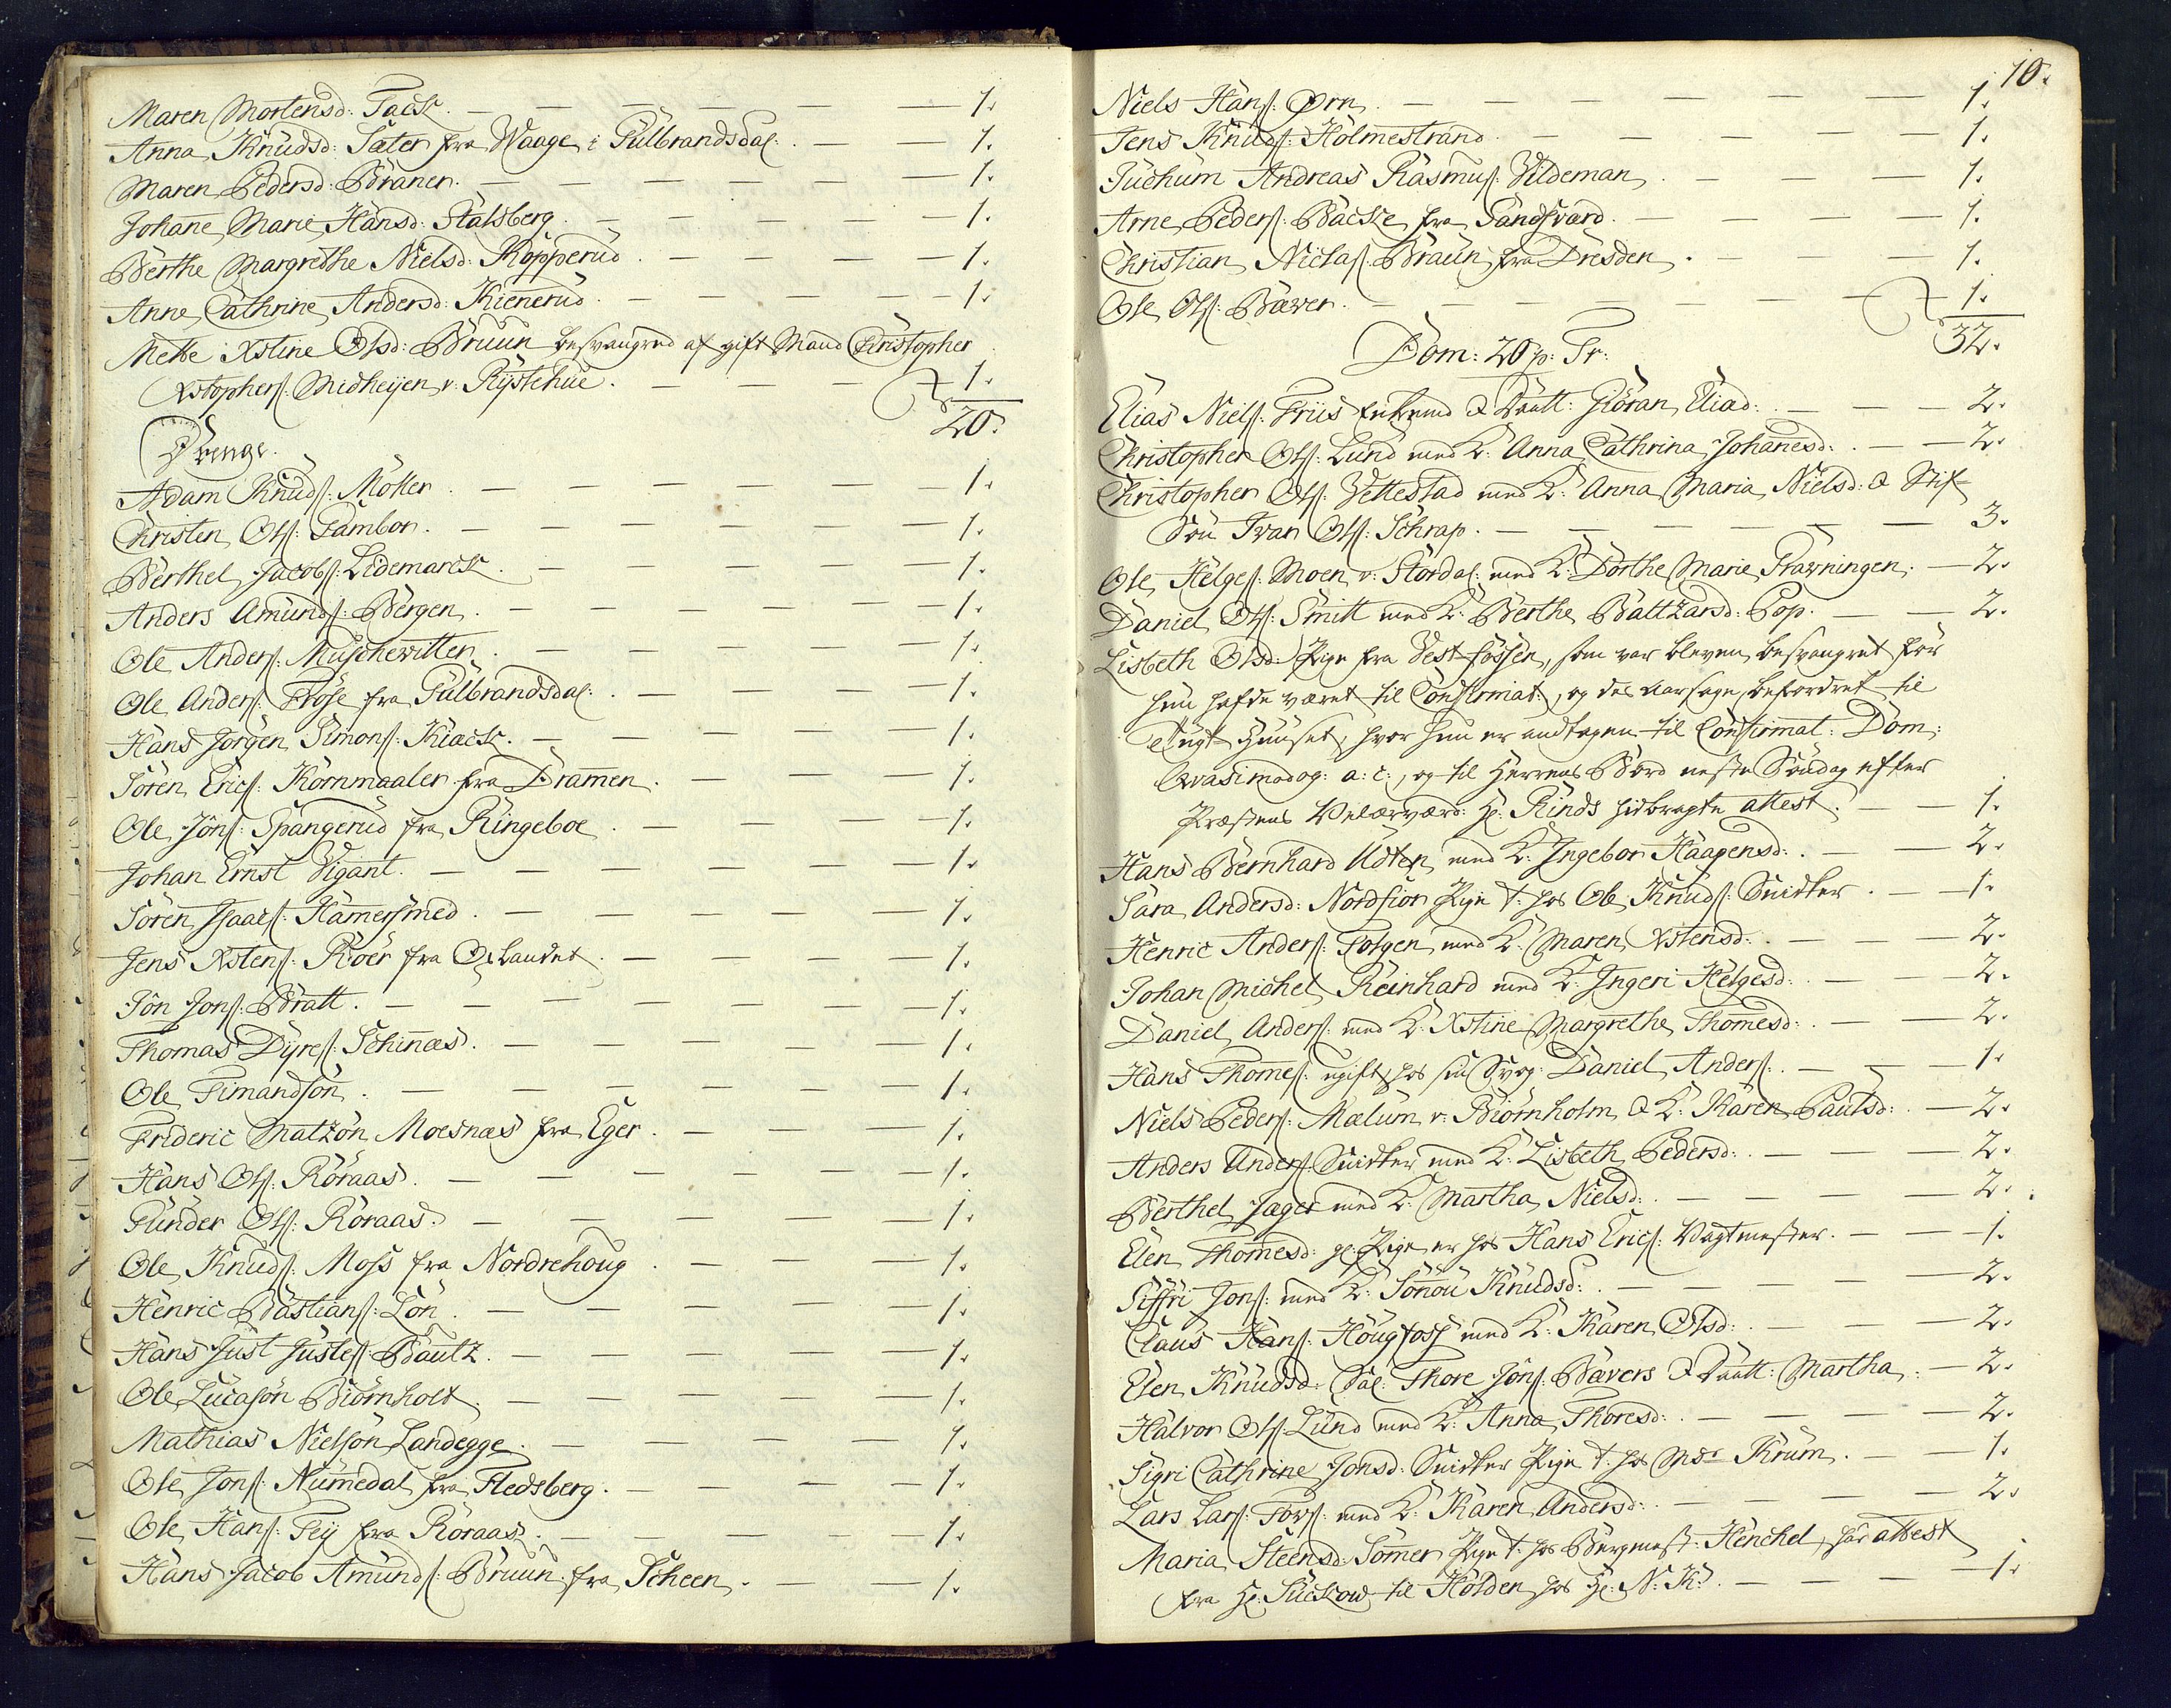 Maren Mortensd: Tack. — 1.
Anna Knudsd: Sæter fra Waage i Gulbrandsdal: — 1.
Maren Pedersd: Braner. — 1.
Johane Marie Hansd: Stalsberg. — 1.
Berthe Margrethe Nielsd: Kopperud. — 1.
Anne Cathrine Andersd: Kienerud. — 1.
Mette Xstine Olsd: Bruun besvangred af gift Mand Christopher
Xstophers: Midheijen v: Rystehue. — 1.
20.
Drenge.
Adam Knuds: Møller. — 1.
Christen Ols: Tambor. — 1.
Berthel Jacobs: Lidemarck. — 1.
Anders Amunds: Bergen. — 1.
Ole Anders: Muschewitten. — 1.
Ole Anders: Frøse fra Gulbrandsdal: — 1.
Hans Jørgen Simons: Kiack. — 1.
Søren Erics: Kornmaaler fra Dramen. — 1.
Ole Jøns: Spangerud fra Ringeboe. — 1.
Johan Ernst Vigant. — 1.
Søren Isaacs: Hamersmed. — 1.
Jens Xstens: Roer fra Oplandet. — 1.
Jøn Jons: Bratt. — 1.
Thomas Dyres: Schinæs. — 1.
Ole Timandsøn. — 1.
Frideric Matzøn Moesnæs fra Eger. — 1.
Hans Ols: Røraas. — 1.
Gunder Ols: Røraas. — 1.
Ole Knuds: Moss fra Nordrehoug. — 1.
Henric Bastians: Løn. — 1.
Hans Just Justes: Bautz. — 1.
Ole Lucasøn Biørnholt. — 1.
Mathias Nielsøn Landegge. — 1.
Ole Jons: Numedal fra Fledsberg. — 1.
Ole Hans: Feij fra Røraas. — 1.
Hans Jacob Amunds: Bruun fra Scheen. — 1.
10.
Niels Hans: Ørn. — 1.
Jens Knuds: Holmestrand. — 1.
Juchum Andreas Rasmus: Vildeman. — 1.
Arne Peders: Backe fra Sandsværd. — 1.
Christian Niclas: Braun fra Dresden. — 1.
Ole Ols: Bæver. — 1.
32.
Dom: 20 p: Tr:
Elias Niels: Friis Enkemd & Daatt: Gøran Eliad: — 2.
Christopher Ols: Lund med K: Anna Cathrina Johanesd: — 2.
Christopher Ols: Vettestad med K: Anna Maria Nielsd: & Stif
Søn Ivar Ols: Schrap. — 3.
Ole Helges: Moen v: Stordal: med K: Dorthe Marie Graxningen. — 2.
Daniel Ols: Smitt med K: Berthe Baltzarsd: Pop. — 2.
Lisbeth Olsd: Pige fra Vestfossen, som var bleven besvangret før
hun hafde været til Confirmat:, og des aarsage befordret til
Tugt-Huuset, hvor hun er andtagen til Confirmat: Dom:
Qvasimodog: a: c:, og til Herrens Bord neste Søndag efter
Præstens Velærværd: Hr: Rinds hidbragte attest. — 1.
Hans Bernhard Udten med K: Ingebor Haagensd: — 2.
Sara Andersd: Nordfior Pige t: hos Ole Knuds: Snidker. — 1.
Henric Anders: Folgen med K: Maren Xstensd: — 2.
Johan Michel Reinhard med K: Ingeri Helgesd: — 2.
Daniel Anders: med K: Xstine Margrethe Thomesd: — 2.
Hans Thomes: ugift, hos sin Svog: Daniel Anders: — 1.
Niels Peders: Mælum v: Biørnholm & K: Karen Paulsd: — 2.
Anders Anders: Snidker med K: Lisbeth Pedersd: — 2.
Berthel Jæger med K: Martha Nielsd: — 2.
Elen Thomesd: gl: Pige er hos Hans Erics: Vagtmester. — 1.
Siffri Jons: med K: Sønou Knudsd: — 2.
Claus Hans: Hougfoss med K: Karen Olsd: — 2.
Elen Knudsd: Sal: Thore Jøns: Bævers & Daatt: Martha. — 2.
Halvor Ols: Lund med K: Anna Thoresd: — 2.
Sigri Cathrine Jonsd: Snidker Pige t: hos Msr Krum. — 1.
Lars Lars: Fors: med K: Karen Andersd: — 2.
Maria Steensd: Somer Pige t: hos Bergmest: Henchel, har attest
fra Hr: Suckow til Holden hos Hr: N: K: — 1.